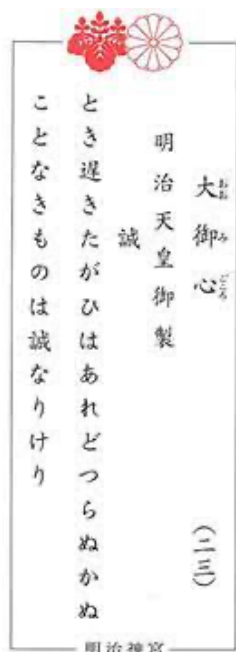 大御心
おおみごころ
(二三)
明治天皇御製
誠
とき遅きたがひはあれどつらぬかぬ
ことなきものは誠なりけり
明治神宮